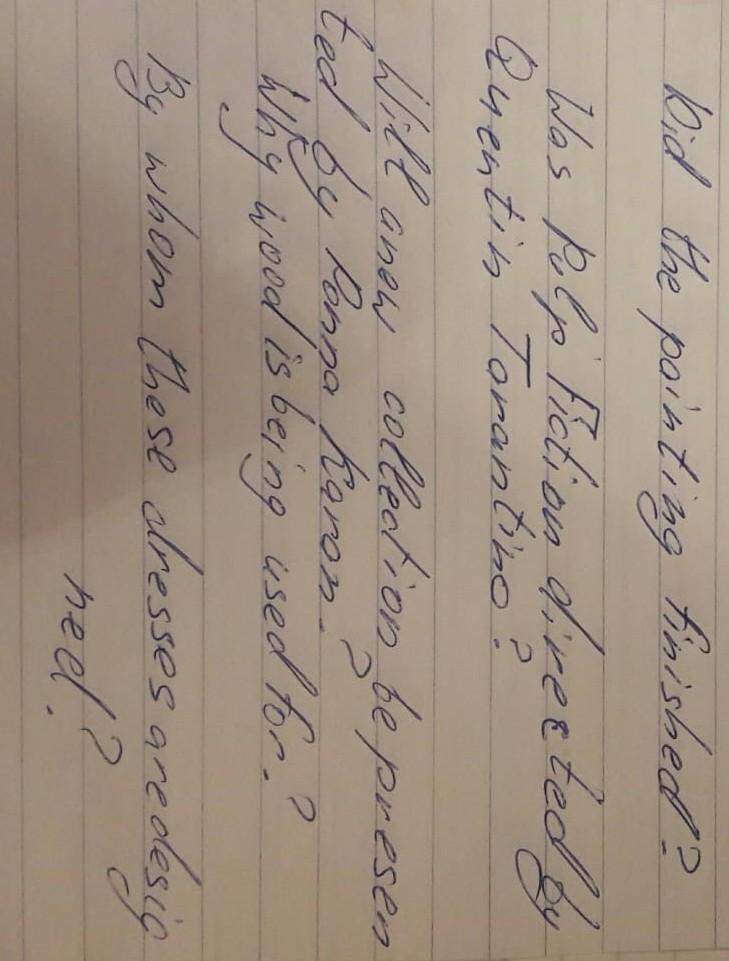 Did the painting finished?
Was Pulp Fiction directed by
Quentin Tarantino?
Will anew collection be presen
ted by Donna Karan?
Why wood is being used for?
By whom these dresses are desig
ned?